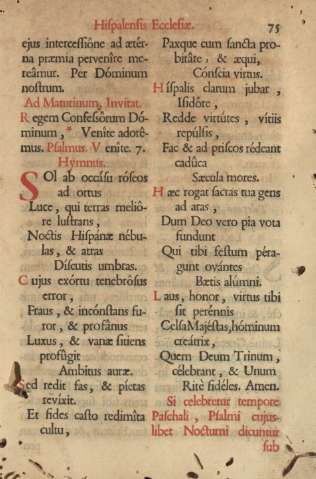 Hispalensis Ecclesiæ. 75
ejus intercessióne ad ætér-
na præmia perveníre me-
reámur. Per Dóminum
nostrum.
Ad Matutinum, Invitat.
Regem Confessórum Dó-
minum, * Venite adoré-
mus. Psalmus. Venite. 7.
Hymnus.
SOl ab occásu róseos
ad ortus
Luce, qui terras melió-
re lustrans,
Noctis Hispánæ nébu-
las, & atras
Discutis umbras.
Cujus exórtu tenebrósus
error,
Fraus, & incónstans fu-
ror, & profánus
Luxus, & vanæ sítiens
profúgit
Ambitus auræ.
Sed redit fas, & píetas
revíxit.
Et fides casto redimíta
cultu,
Paxque cum sancta pro-
bitáte, & æqui,
Cónscia virtus.
Híspalis clarum jubar,
Isidóre,
Redde virtútes, vitiis
repúlsis,
Fac & ad priscos rédeant
cadúca
Sæcula mores.
Hæc rogat sacras tua gens
ad aras,
Dum Deo vero pia vota
fundunt
Qui tibi festum péra-
gunt ovántes
Bætis alúmni.
Laus, honor, virtus tibi
sit perénnis
Celsa Majéstas, hóminum
creátrix,
Quem Deum Trinum,
célebrant, & Unum
Ritè fidéles. Amen.
Si celebretur tempore
Paschali, Psalmi cujus-
libet Nocturni dicuntur
sub